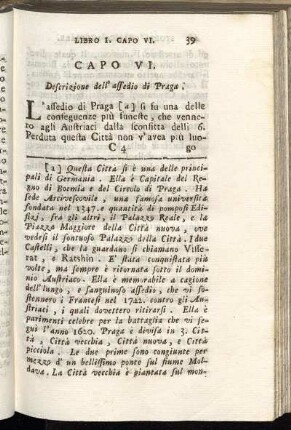 LIBRO I. CAPO VI. 39
CAPO VI.
Descrizione dell'assedio di Praga.
L'assedio di Praga [a] si fu una delle
conseguenze più funeste, che venne-
ro agli Austriaci dalla sconfitta delli 6.
Perduta questa Città non v'avea più luo-
C 4 go
[a] Questa Città si è una delle princi-
pali di Germania. Ella è Capitale del Re-
gno di Boemia e del Circolo di Praga. Ha
sede Arcivescovile, una famosa università
fondata nel 1347. e quantità di pomposi Edi-
fizj, fra gli altri, il Palazzo Reale, e la
Piazza Maggiore della Città nuova, ove
vedesi il sontuoso Palazzo della Città. I due
Castelli, che la guardano si chiamano Visse-
rat, e Ratshin. E' stata conquistata più
volte, ma sempre è ritornata sotto il domi-
nio Austriaco. Ella è memorabile a cagione
dell'lungo, e sanguinoso assedio, che vi so-
stennero i Francesi nel 1742. contro gli Au-
striaci, i quali dovettero ritirarsi. Ella è
parimenti celebre per la battaglia che vi se-
guì l'anno 1620. Praga è divisa in 3. Cit-
tà, Città vecchia, Città nuova, e Città
picciola. Le due prime sono congiunte per
mezzo d'un bellissimo ponte sul fiume Mol-
dava. La Città vecchia è piantata sul mon-